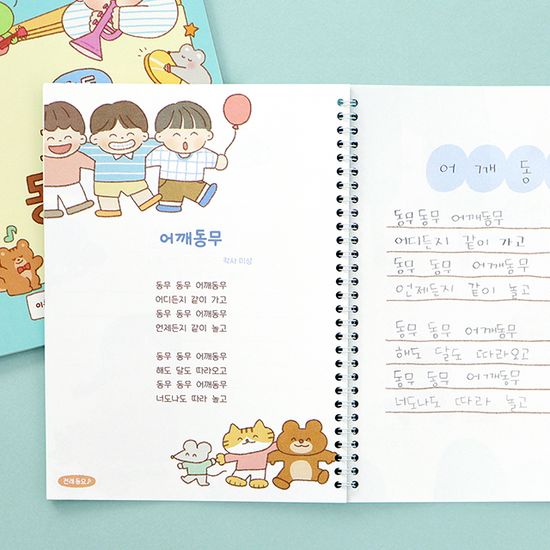 어깨동무
작사 미상
동무 동무 어깨동무
어디든지 같이 가고
동무 동무 어깨동무
언제든지 같이 놀고
동무 동무 어깨동무
해도 달도 따라오고
동무 동무 어깨동무
너도나도 따라 놀고
전래 동요♪
어 깨 동
동무 동무 어깨동무
어디든지 같이 가고
동무 동무 어깨동무
언제든지 같이 놀고
동무 동무 어깨동무
해도 달도 따라오고
동무 동무 어깨동무
너도나도 따라 놀고